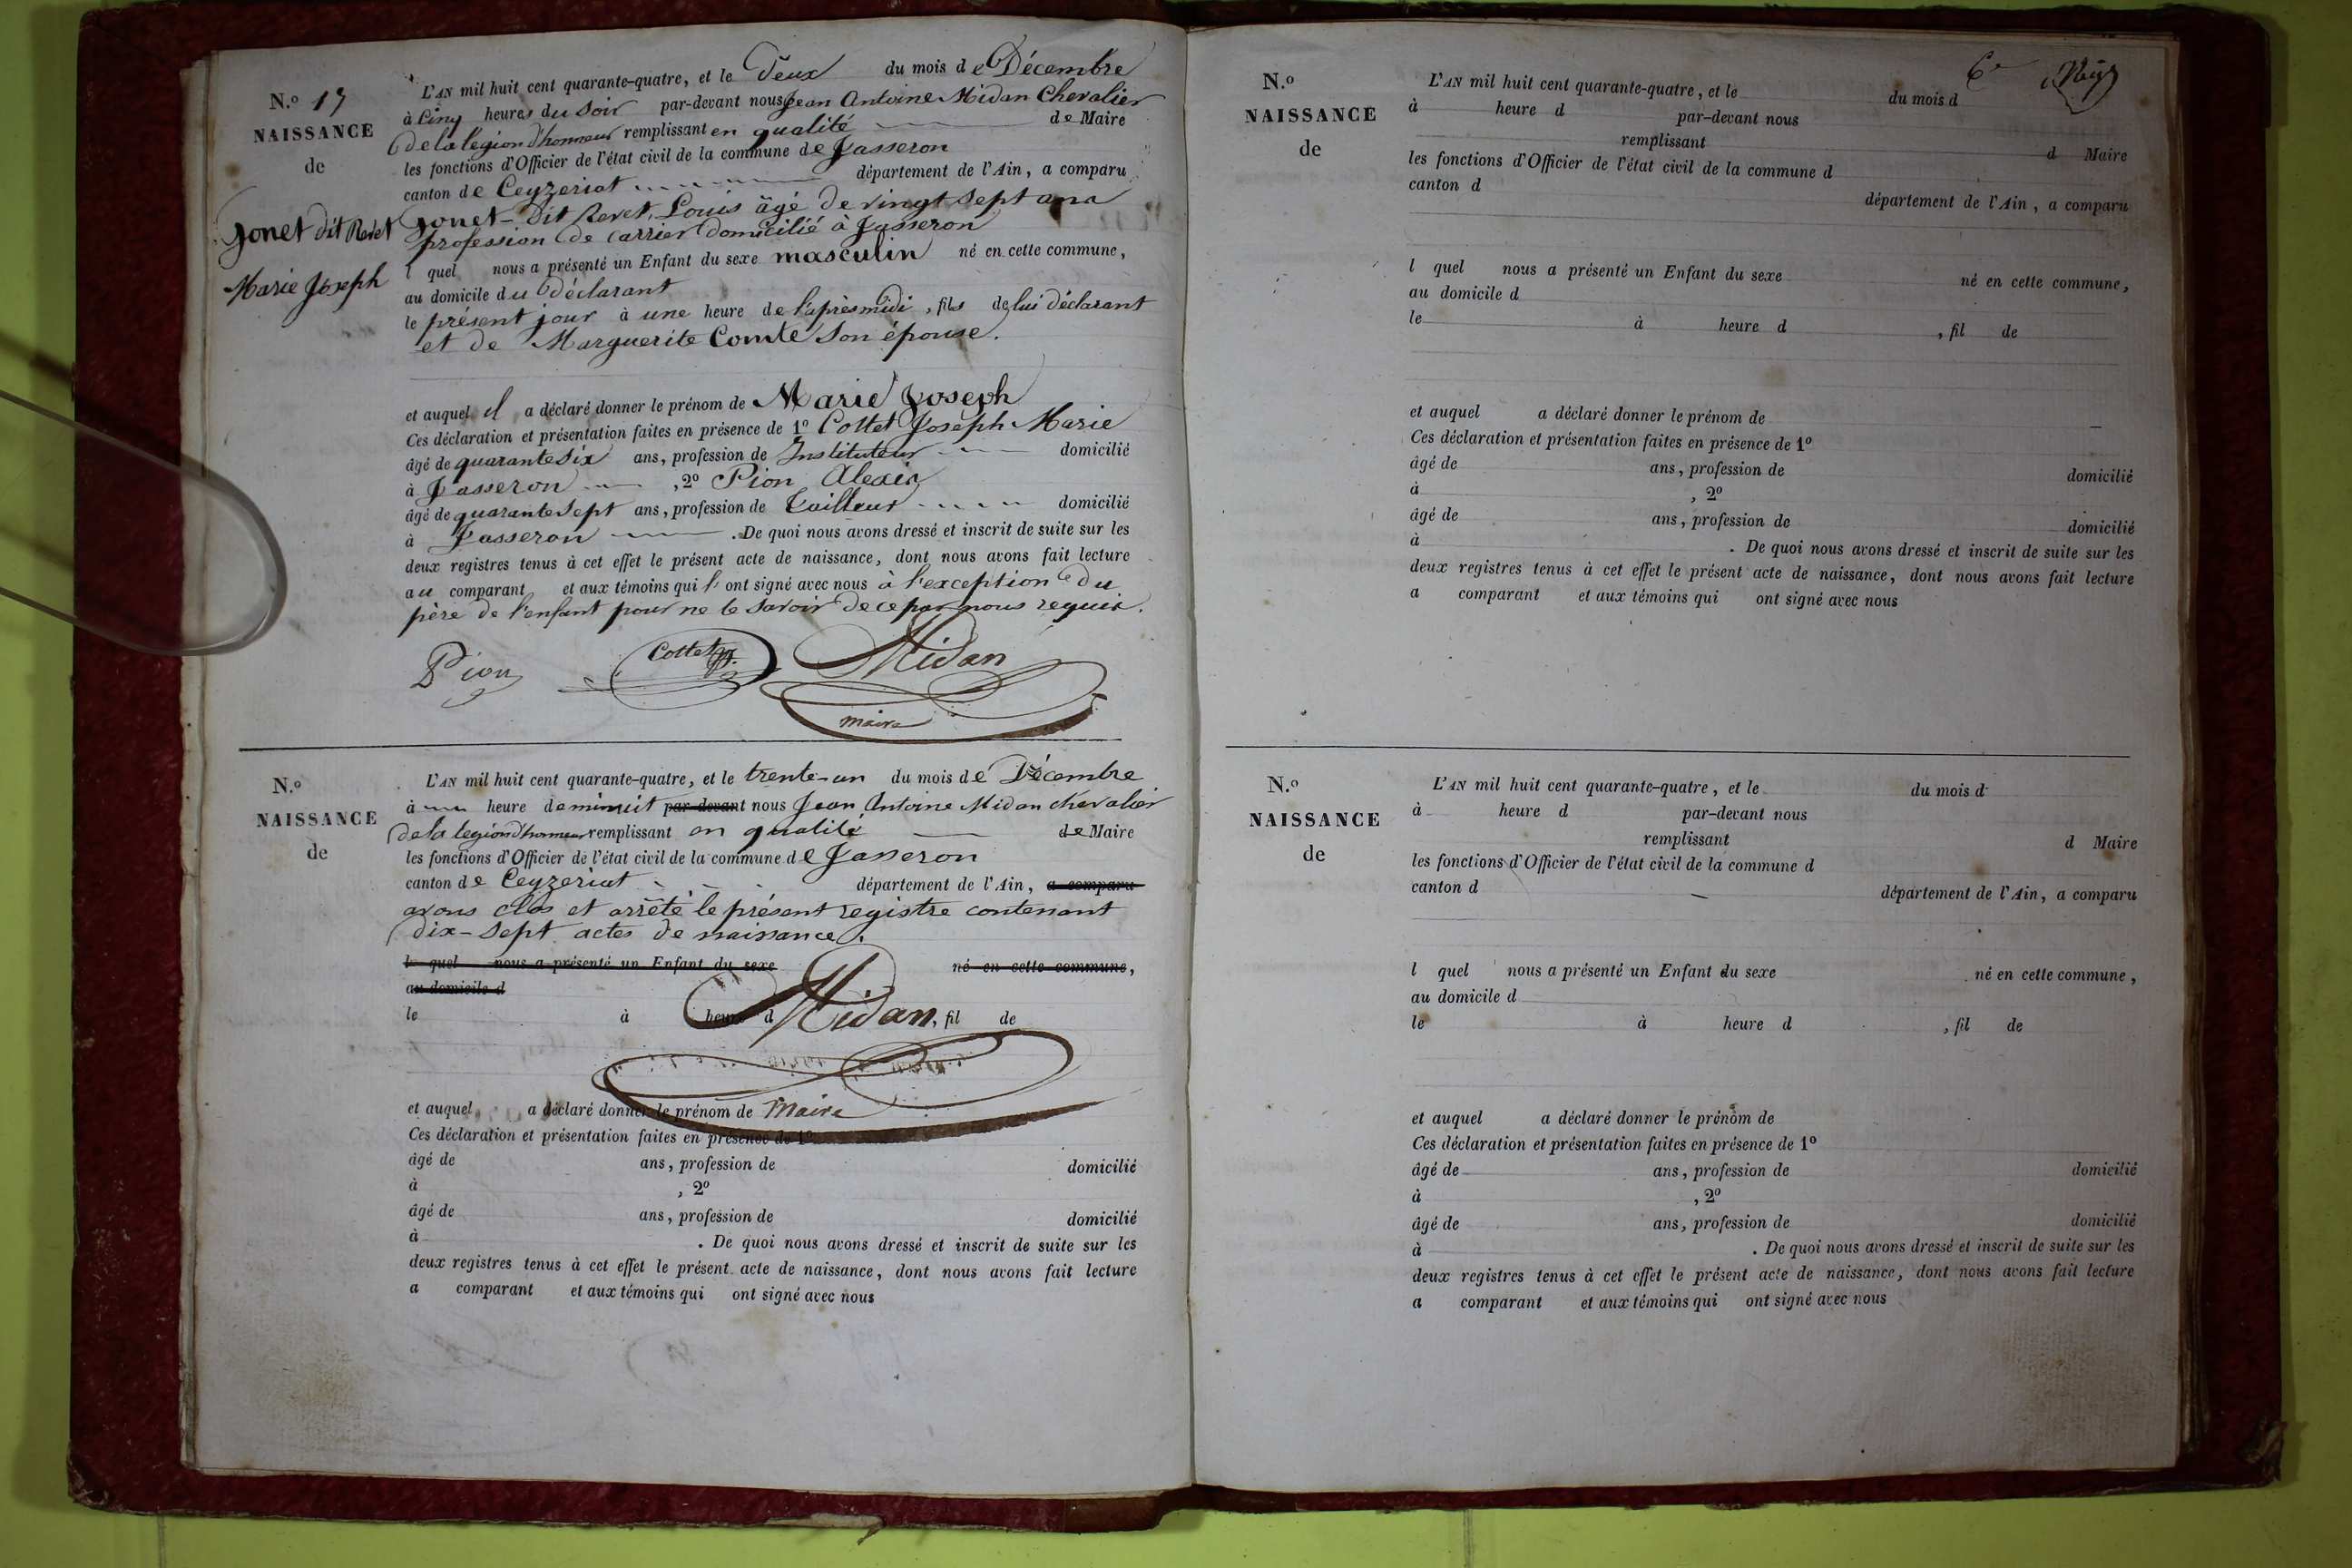 N.o 17
NAISSANCE
de
Jonet dit Revet
Marie Joseph
L'AN mil huit cent quarante-quatre, et le deux du mois de Décembre
à Cinq heures du Soir par-devant nous Jean Antoine Midan Chevalier
de la legion d'honneur remplissant en qualité de Maire
les fonctions d'Officier de l'état civil de la commune de Jasseron
canton de Ceyzeriat département de l'Ain, a comparu
Jonet-dit Revet, Louis âgé de vingt sept ans
profession de Carrier domicilié à Jasseron
l quel nous a présenté un Enfant du sexe masculin né en cette commune,
au domicile du déclarant
le présent jour à une heure de l'après midi, fils de lui déclarant
et de Marguerite Comte son épouse.
et auquel il a déclaré donner le prénom de Marie Joseph
Ces déclaration et présentation faites en présence de 1º Cottet Joseph Marie
âgé de quarante six ans, profession de Instituteur domicilié
à Jasseron , 2º Pion Alexis
âgé de quarante sept ans, profession de Tailleur domicilié
à Jasseron . De quoi nous avons dressé et inscrit de suite sur les
deux registres tenus à cet effet le présent acte de naissance, dont nous avons fait lecture
au comparant et aux témoins qui l' ont signé avec nous à l'exception du
père de l'enfant pour ne le savoir de ce par nous requis.
Pion Cottet Midan
maire
N.o
NAISSANCE
de
L'AN mil huit cent quarante-quatre, et le trente-un du mois de Décembre
à heure de minuit par-devant nous Jean Antoine Midan chevalier
de la legion d'honneur remplissant en qualité de Maire
les fonctions d'Officier de l'état civil de la commune de Jasseron
canton de Ceyzeriat département de l'Ain, a comparu
avons clos et arrêté le présent registre contenant
dix-sept actes de naissance.
l quel nous a présenté un Enfant du sexe né en cette commune,
au domicile d
le à heure d Midan , fil de
et auquel a déclaré donner le prénom de Maire
Ces déclaration et présentation faites en présence de 1º
âgé de ans, profession de domicilié
à , 2º
âgé de ans, profession de domicilié
à . De quoi nous avons dressé et inscrit de suite sur les
deux registres tenus à cet effet le présent acte de naissance, dont nous avons fait lecture
a comparant et aux témoins qui ont signé avec nous
6e
N.o
NAISSANCE
de
L'AN mil huit cent quarante-quatre, et le du mois d
à heure d par-devant nous
remplissant d Maire
les fonctions d'Officier de l'état civil de la commune d
canton d département de l'Ain, a comparu
l quel nous a présenté un Enfant du sexe né en cette commune,
au domicile d
le à heure d , fil de
et auquel a déclaré donner le prénom de
Ces déclaration et présentation faites en présence de 1º
âgé de ans, profession de domicilié
à , 2º
âgé de ans, profession de domicilié
à . De quoi nous avons dressé et inscrit de suite sur les
deux registres tenus à cet effet le présent acte de naissance, dont nous avons fait lecture
a comparant et aux témoins qui ont signé avec nous
N.o
NAISSANCE
de
L'AN mil huit cent quarante-quatre, et le du mois d
à heure d par-devant nous
remplissant d Maire
les fonctions d'Officier de l'état civil de la commune d
canton d département de l'Ain, a comparu
l quel nous a présenté un Enfant du sexe né en cette commune,
au domicile d
le à heure d , fil de
et auquel a déclaré donner le prénom de
Ces déclaration et présentation faites en présence de 1º
âgé de ans, profession de domicilié
à , 2º
âgé de ans, profession de domicilié
à . De quoi nous avons dressé et inscrit de suite sur les
deux registres tenus à cet effet le présent acte de naissance, dont nous avons fait lecture
a comparant et aux témoins qui ont signé avec nous